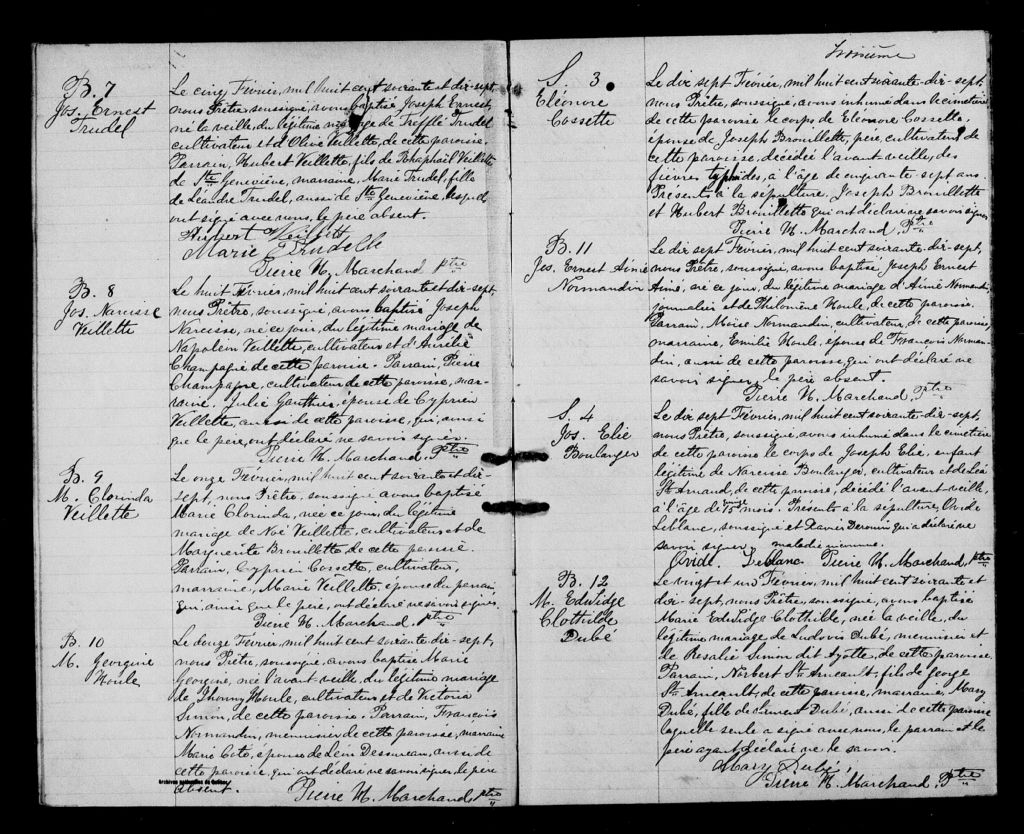 B. 7
Jos. Ernest
Trudel
Le cinq Février, mil huit cent soixante et dix-sept,
nous Prêtre, soussigné, avons baptisé Joseph Ernest,
né la veille, du légitime mariage de Trefflé Trudel
cultivateur et d'Olive Veillette, de cette paroisse.
Parrain, Hubert Veillette, fils de Raphaël Veillette
de Ste Geneviève, marraine, Marie Trudel, fille
de Léandre Trudel, aussi de Ste Geneviève, lesquels
ont signé avec nous, le père absent.
Hubert Veillett
Marie Trudelle
Pierre H. Marchand Ptre
B. 8
Jos. Narcisse
Veillette
Le huit Février, mil huit cent soixante et dix-sept,
nous Prêtre, soussigné, avons baptisé Joseph
Narcisse, né ce jour, du légitime mariage de
Napoléon Veillette, cultivateur et d'Aurélie
Champagne de cette paroisse. Parrain, Pierre
Champagne, cultivateur de cette paroisse, mar-
raine, Julie Gauthier, épouse de Cyprien
Veillette, aussi de cette paroisse, qui, ainsi
que le père, ont déclaré ne savoir signer.
Pierre H. Marchand, Ptre
B. 9
M. Clorinda
Veillette
Le onze Février, mil huit cent soixante et dix-
sept, nous Prêtre, soussigné avons baptisé
Marie Clorinda, née ce jour, du légitime
mariage de Noé Veillette, cultivateur et de
Marguerite Brouillette de cette paroisse.
Parrain, Cyprien Cossette, cultivateur,
marraine, Marie Veillette, épouse du parrain,
qui, ainsi que le père, ont déclaré ne savoir signer.
Pierre H. Marchand, Ptre
B. 10
M. Georgine
Houle
Le douze Février, mil huit cent soixante dix-sept,
nous Prêtre, soussigné, avons baptisé Marie
Georgine, née l'avant veille, du légitime mariage
de Jhonny Houle, cultivateur et de Victoria
Simon, de cette paroisse. Parrain, François
Normandin, menuisier de cette paroisse, marraine
Marie Coté, épouse de Dessureau, aussi de
cette paroisse, qui ont déclaré ne savoir signer, le père
absent.
Pierre H. Marchand, Ptre
Archives nationales du Québec
Troisième
S. 3.
Eléonore
Cossette
Le dix sept Février, mil huit cent soixante-dix-sept,
nous Prêtre, soussigné, avons inhumé dans le cimetière
de cette paroisse le corps de Eléonore Cossette,
épouse de Joseph Brouillette, père, cultivateur de
cette paroisse, décédée l'avant veille, des
fièvres typhides, à l'âge de cinquante sept ans.
Présents à la sépulture, Joseph Brouillette
et Hubert Brouillette qui ont déclaré ne savoir signer.
Pierre H. Marchand, Ptre
B. 11
Jos. Ernest Aimé
Normandin
Le dix sept Février, mil huit cent soixante dix-sept,
nous Prêtre, soussigné, avons baptisé, Joseph Ernest
Aimé, né ce jour, du légitime mariage d'Aimé Normandin,
journalier et de Philomène Houle, de cette paroisse.
Parrain, Moïse Normandin, cultivateur, de cette paroisse,
marraine, Emilie Houle, épouse de François Norman-
din, aussi de cette paroisse, qui ont déclaré ne
savoir signer, le père absent.
Pierre H. Marchand, Ptre
S. 4
Jos. Elie
Boulanger
Le dix sept Février, mil huit cent soixante-dix-sept,
nous Prêtre, soussigné, avons inhumé dans le cimetière
de cette paroisse le corps de Joseph Elie, enfant
légitime de Narcisse Boulanger, cultivateur et de Léa
St-Arnaud, de cette paroisse, décédé l'avant-veille,
à l'âge de mois. Présents à la sépulture, Ovide
Leblanc, soussigné et Xavier qui a déclaré ne
savoir signer. maladie inconnue.
Ovide. Leblanc Pierre H. Marchand, Ptre
B. 12
M. Edwidge
Clothilde
Dubé
Le vingt et un Février, mil huit cent soixante et
dix-sept, nous Prêtre, soussigné, avons baptisé
Marie Edwidge Clothilde, née la veille, du
légitime mariage de Ludovis Dubé, menuisier et
de Rosalie Simon dit Ayotte, de cette paroisse.
Parrain, Norbert St-Arneault, fils de George
St-Arneault, de cette paroisse, marraine, Mary
Dubé, fille de Dubé, aussi de cette paroisse
laquelle seule a signé avec nous, le parrain et le
père ayant déclaré ne le savoir.
Mary Dubé,
Pierre H. Marchand, Ptre